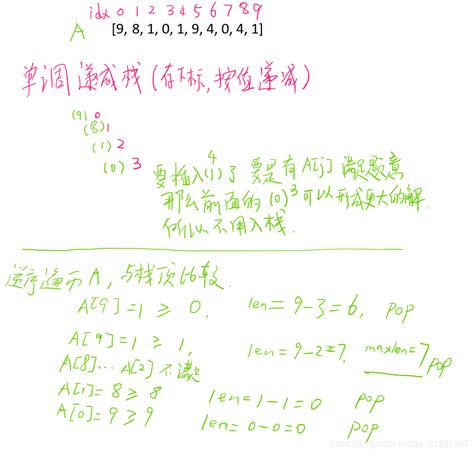 idx 0 1 2 3 4 5 6 7 8 9
A [9, 8, 1, 0, 1, 9, 4, 0, 4, 1]
单调递减栈(存下标,按值递减)
(9) 0
(8) 1
(1) 2
(0) 3
4
要插入(1)了 要是有A[j]满足题意
那么前面的(0)3可以形成更大的解.
所以不用入栈.
逆序遍历A,与栈顶比较.
A[9]=1≥0, len=9-3=6, pop
A[9]=1≥1, len=9-2=7, maxlen=7 pop
A[8]...A[2]不满足
A[1]=8≥8 len=1-1=0 pop
A[0]=9≥9 len=0-0=0 pop
https://blog.csdn.net/qq_21201267